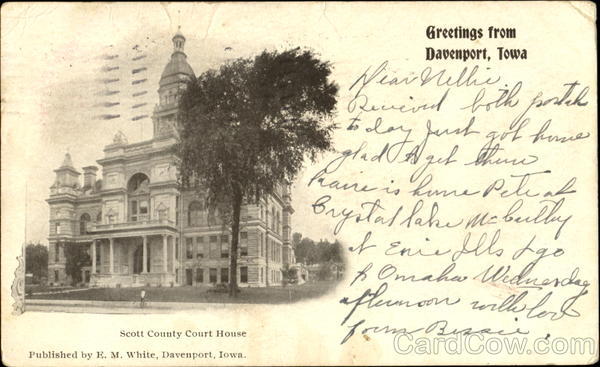 Greetings from
Davenport, Iowa
Dear Nellie
Recieved both postals
to day Just got home
glad to get them
is home Pete at
Crystal lake McCarthy
at Erie Ills I go
to Omaha Wednesday
afternoon with love
from Bessie.
Scott County Court House
Published by E. M. White, Davenport, Iowa.
CardCow.com